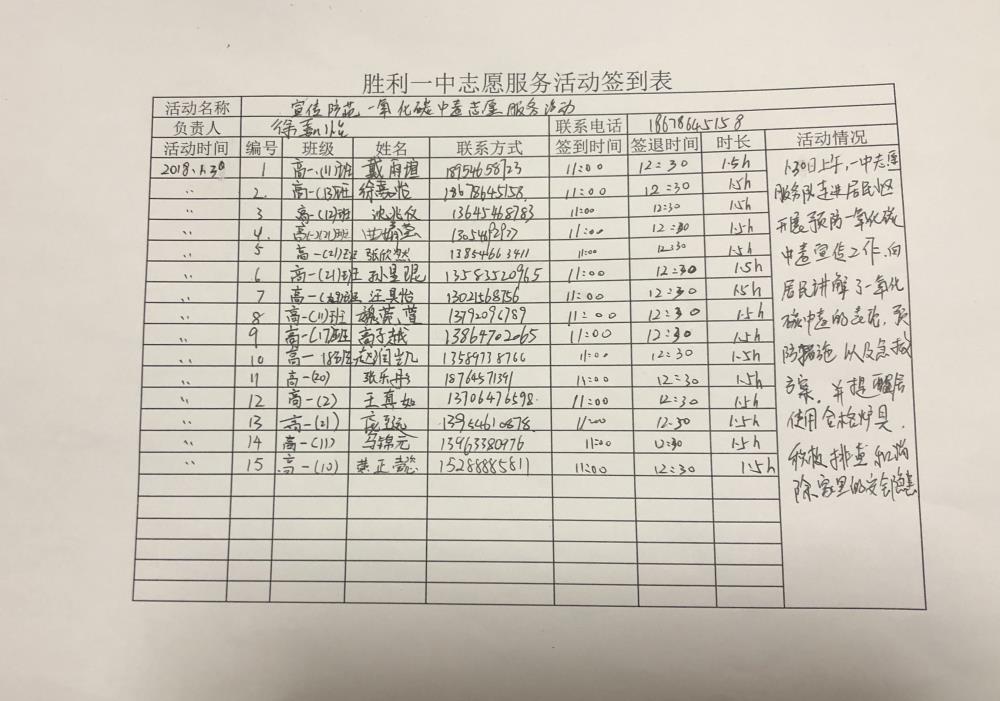 胜利一中志愿服务活动签到表
活动名称 宣传防范一氧化碳中毒志愿服务活动
负责人 徐嘉怡 联系电话 18678645158 活动情况
活动时间 编号 班级 姓名 联系方式 签到时间 签退时间 时长
2018.1.30 1 高一(11)班 戴雨萱 18954658723 11:00 12:30 1.5h
〃 2. 高一(13)班 徐嘉怡 18678645158. 11:00 12:30 1.5h
〃 3 高一(12)班 沈兆仪 13645468783 11:00 12:30 1.5h
〃 4. 高(一)(21)班 11:00 12:30 1.5h
〃 5 高一(21)班 张欣然 13854663411 11:00 12:30 1.5h
〃 6 高一(21)班 孙呈琨 13583520965 11:00 12:30 1.5h
〃 7 高一 班 汪昊怡 13021568756 11:00 12:30 1.5h
〃 8 高一(11)班 13792096789 11:00 12:30 1.5h
〃 9 高一(17)班 高子越 13864702065 11:00 12:30 1.5h
〃 10 高一18班 赵润凯 13589738766 11:00 12:30 1.5h
〃 11 高一(20) 18764571391 11:00 12:30 1.5h
〃 12 高一(2) 王真如 13706476598. 11:00 12:30 1.5h
〃 13 高一(21) 13954610878. 11:00 12:30 1.5h
〃 14 高一(11) 马锦元 13963380976 11:00 12:30 1.5h
〃 15 高一(10) 15288885811 11:00 12:30 1.5h
1.30日上午,一中志愿
服务队走进居民小区
开展预防一氧化碳
中毒宣传工作.向
居民讲解了一氧化
碳中毒的危险,预
防措施以及急救
方案.并提醒居
使用合格炉具,
积极排查和消
除家里的安全隐患